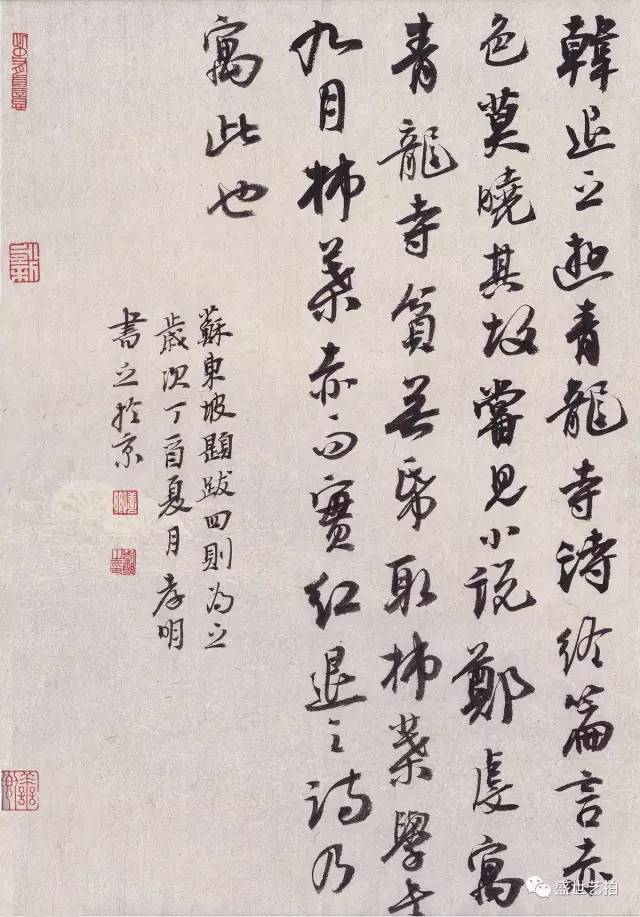 韓退之遊青龍寺詩終篇言赤
色莫曉其故嘗見小说鄭虔寓
青龍寺貧無紙取柿葉學書
九月柿葉赤而實红退之詩乃
寓此也
蘇東坡題跋四則為之
歲次丁酉夏月孝明
書之於京
盛世艺拍